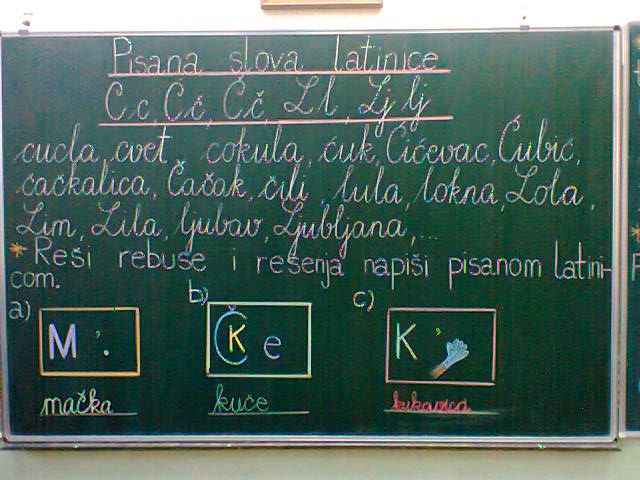 Pisana slova latinice
C c, Ć ć, Č č, L l, Lj lj
cucla, cvet, cokula, ćuk, Ćićevac, Ćubić,
čačkalica, Čačak, čili, lula, lokna, Lola,
Lim, Lila, ljubav, Ljubljana,...
* Reši rebuse i rešenja napiši pisanom latini-
com.
a) b) c)
M ’. Č K e K ’
mačka kuče